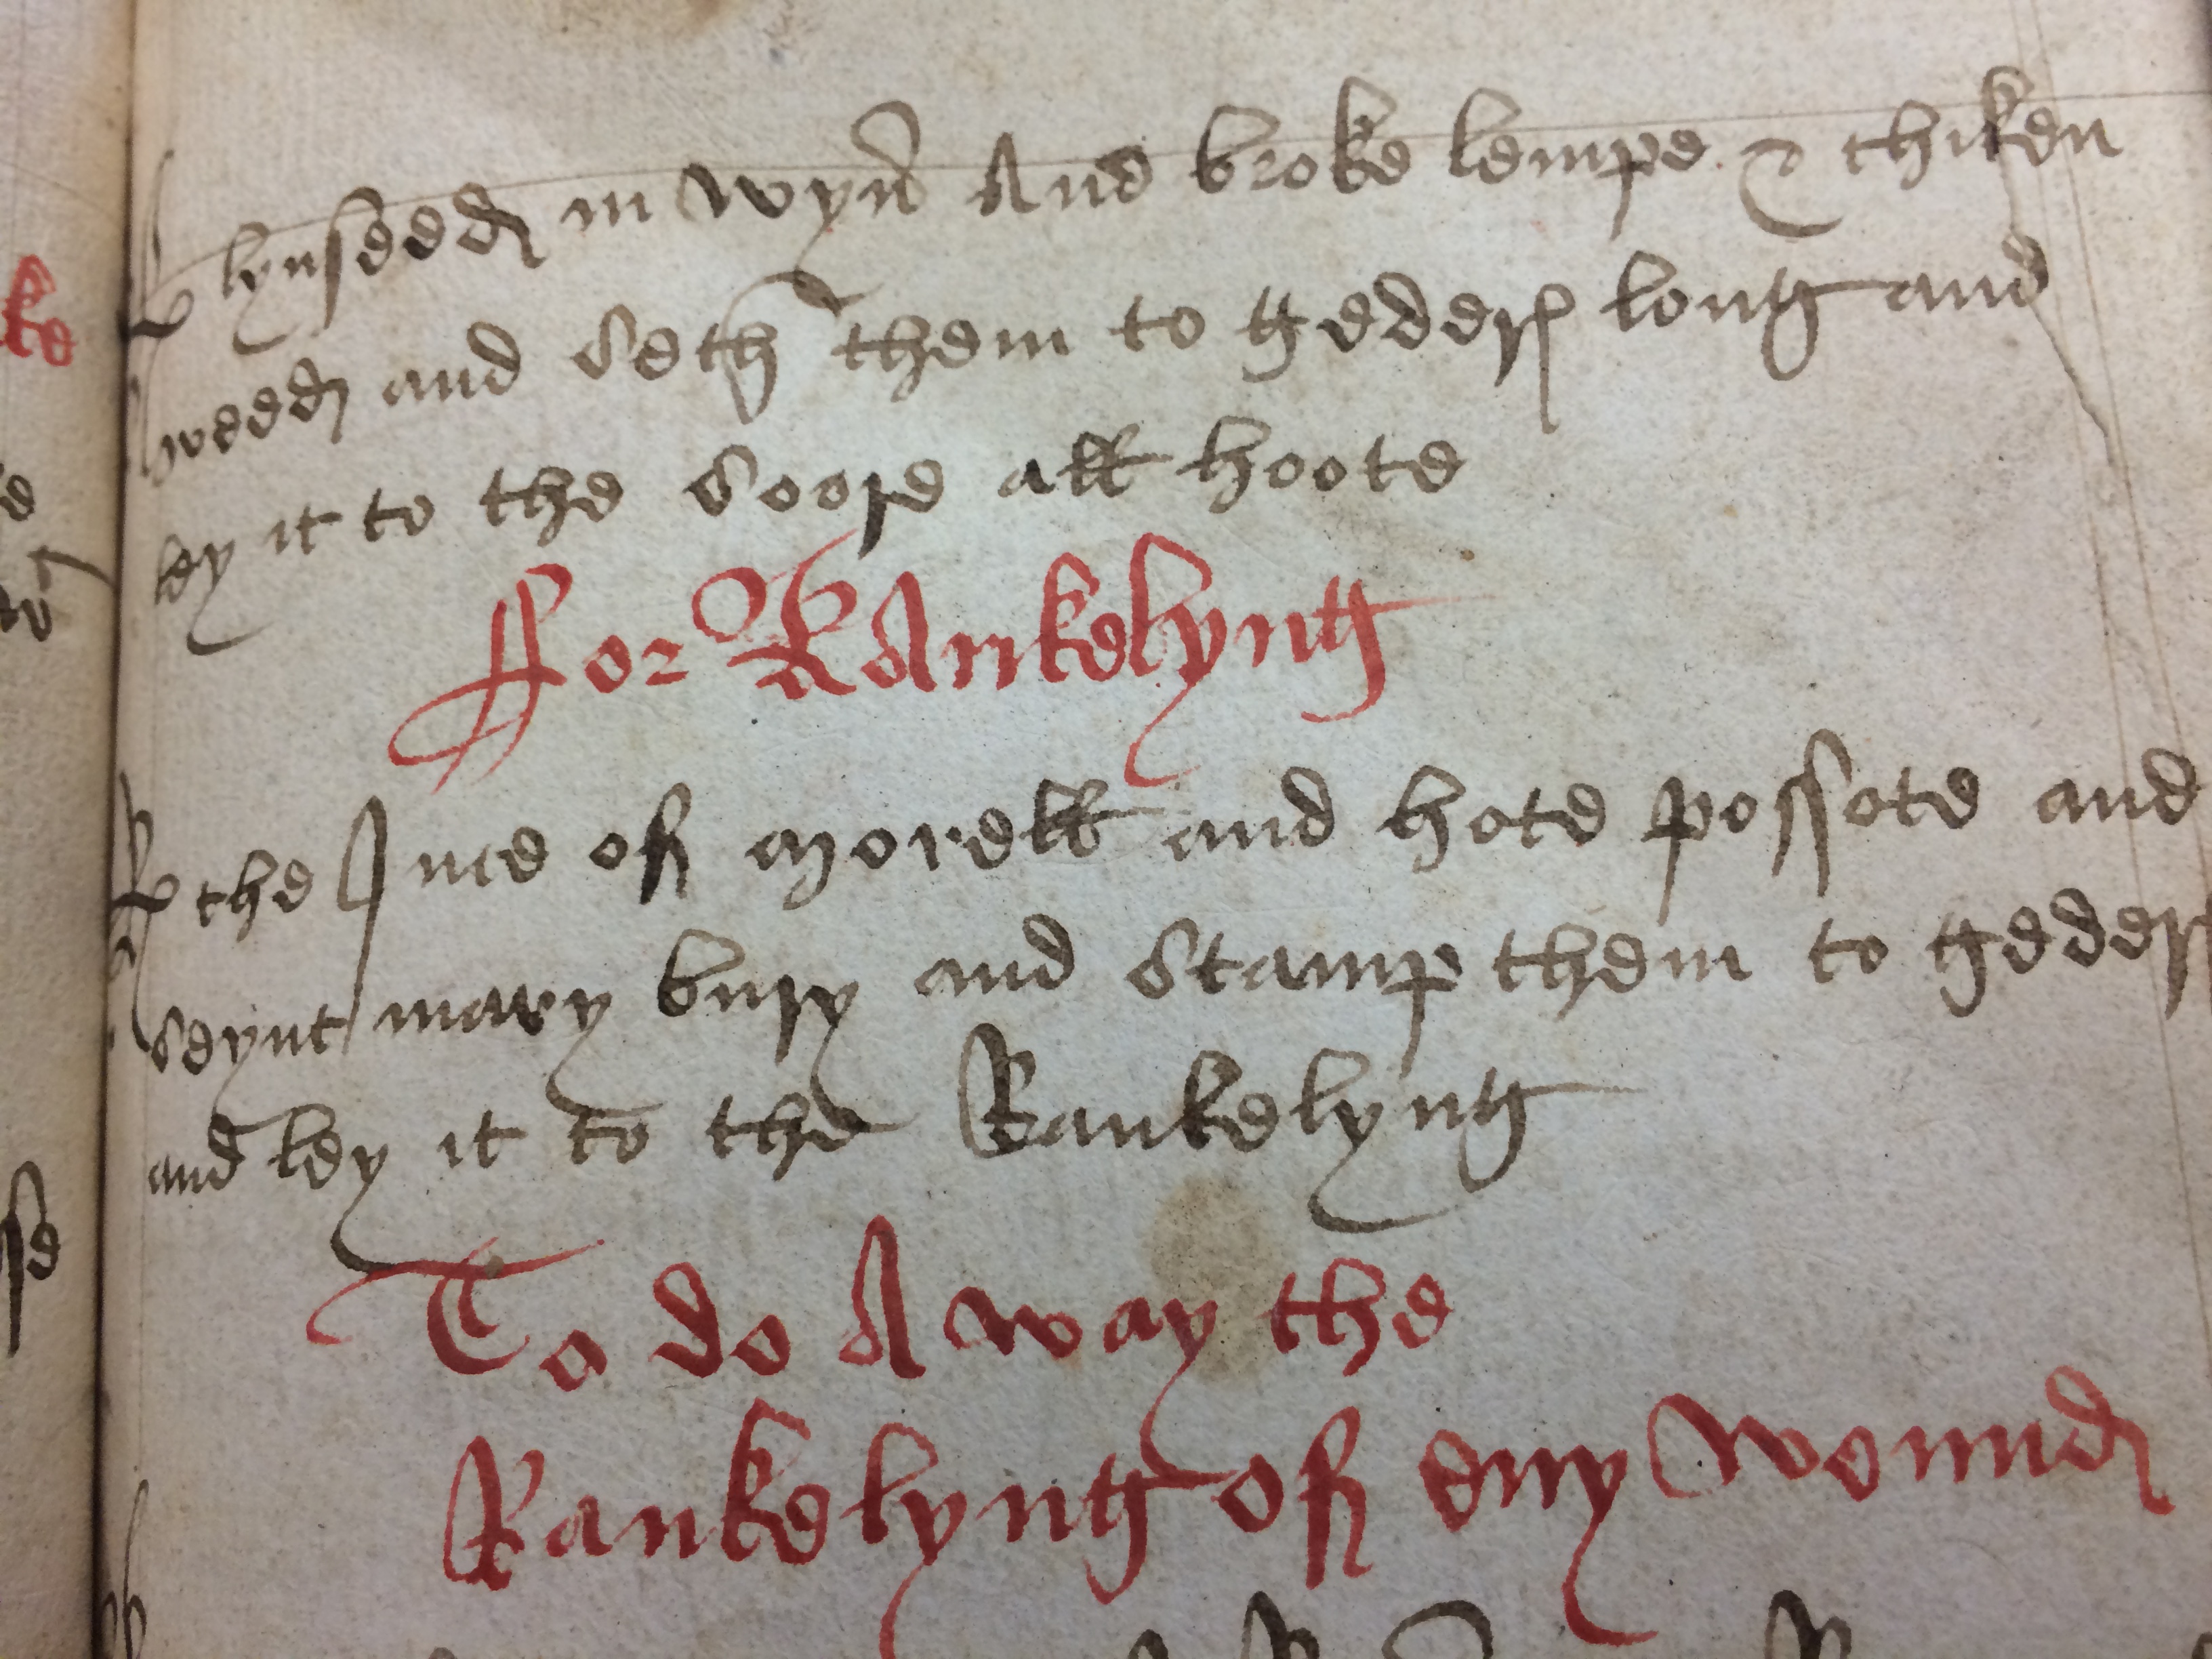 ℞ lynseed in wyn And broke lempe & thiken
weed and Seth them to geder long and
ley it to the Soore all hoote
ffor RAnkelyng
℞ the Juce of morell and hote possote and
Seynt mary bury and Stamp them to geder
and ley it to the Rankelyng
To do A way the
Rankelyng of eny wound